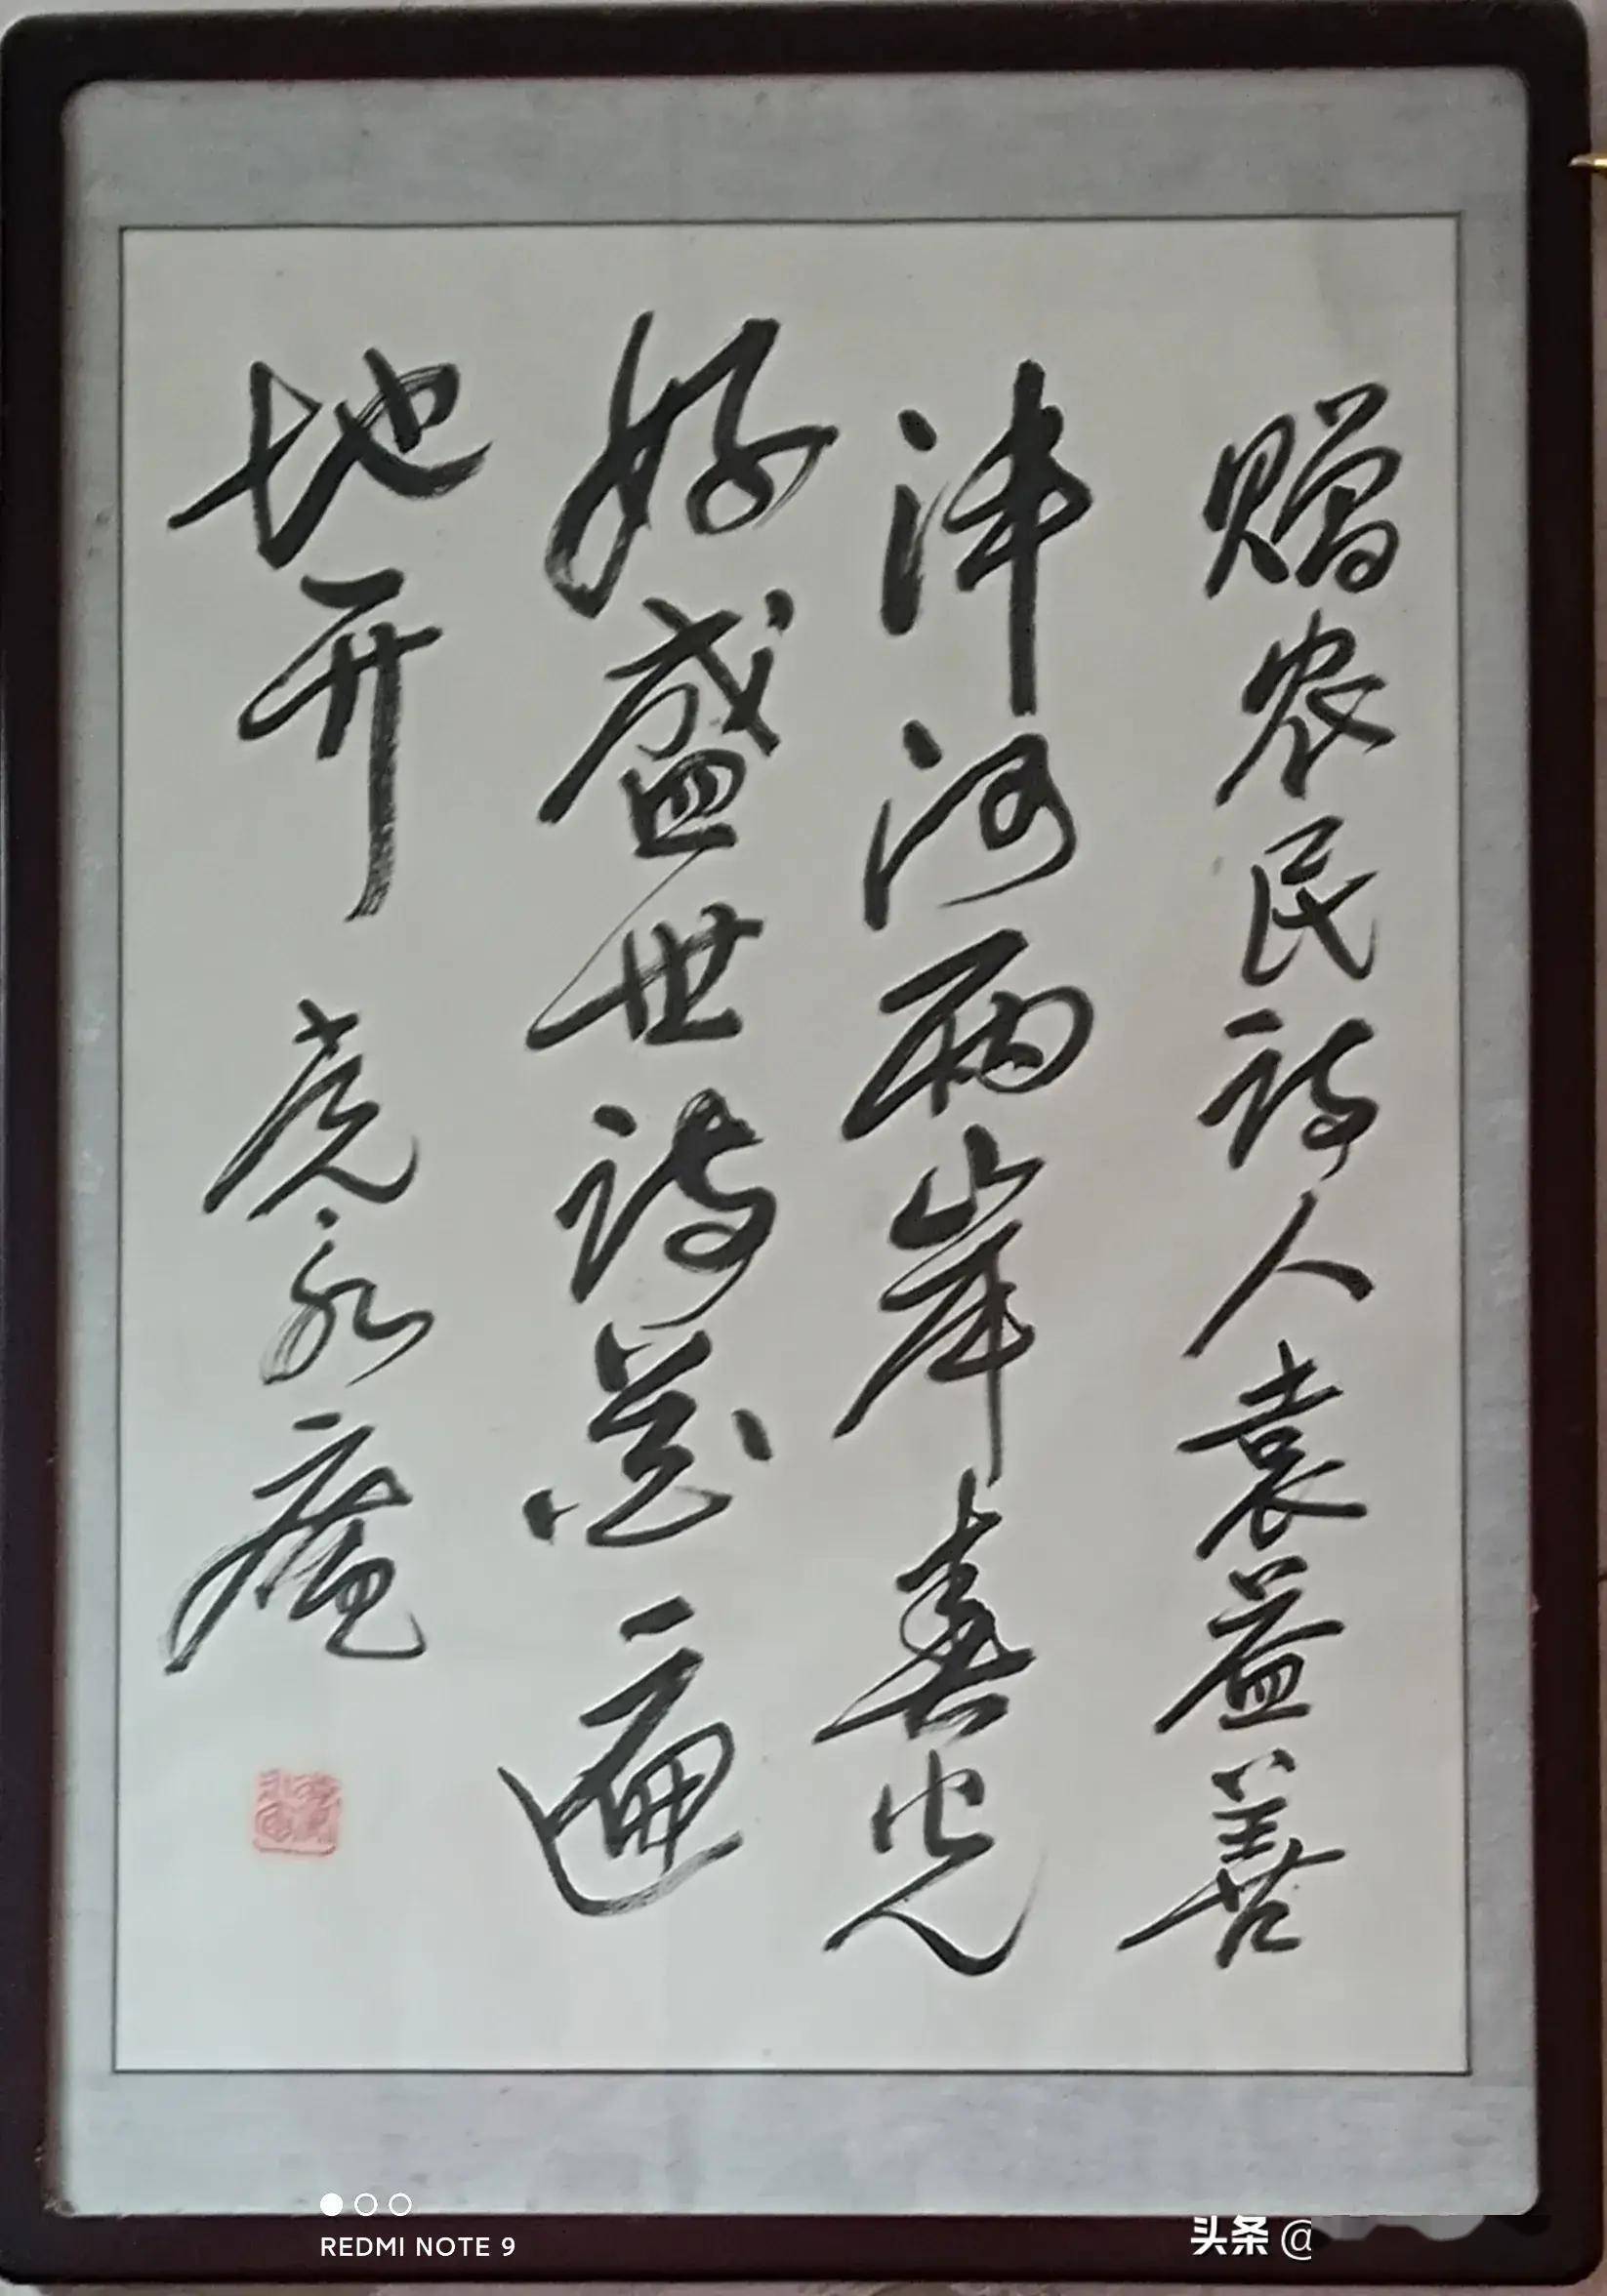 赠农民诗人袁益善
沣河两岸春光
好盛世诗遍
地开 永庵
REDMI NOTE 9
头条 @